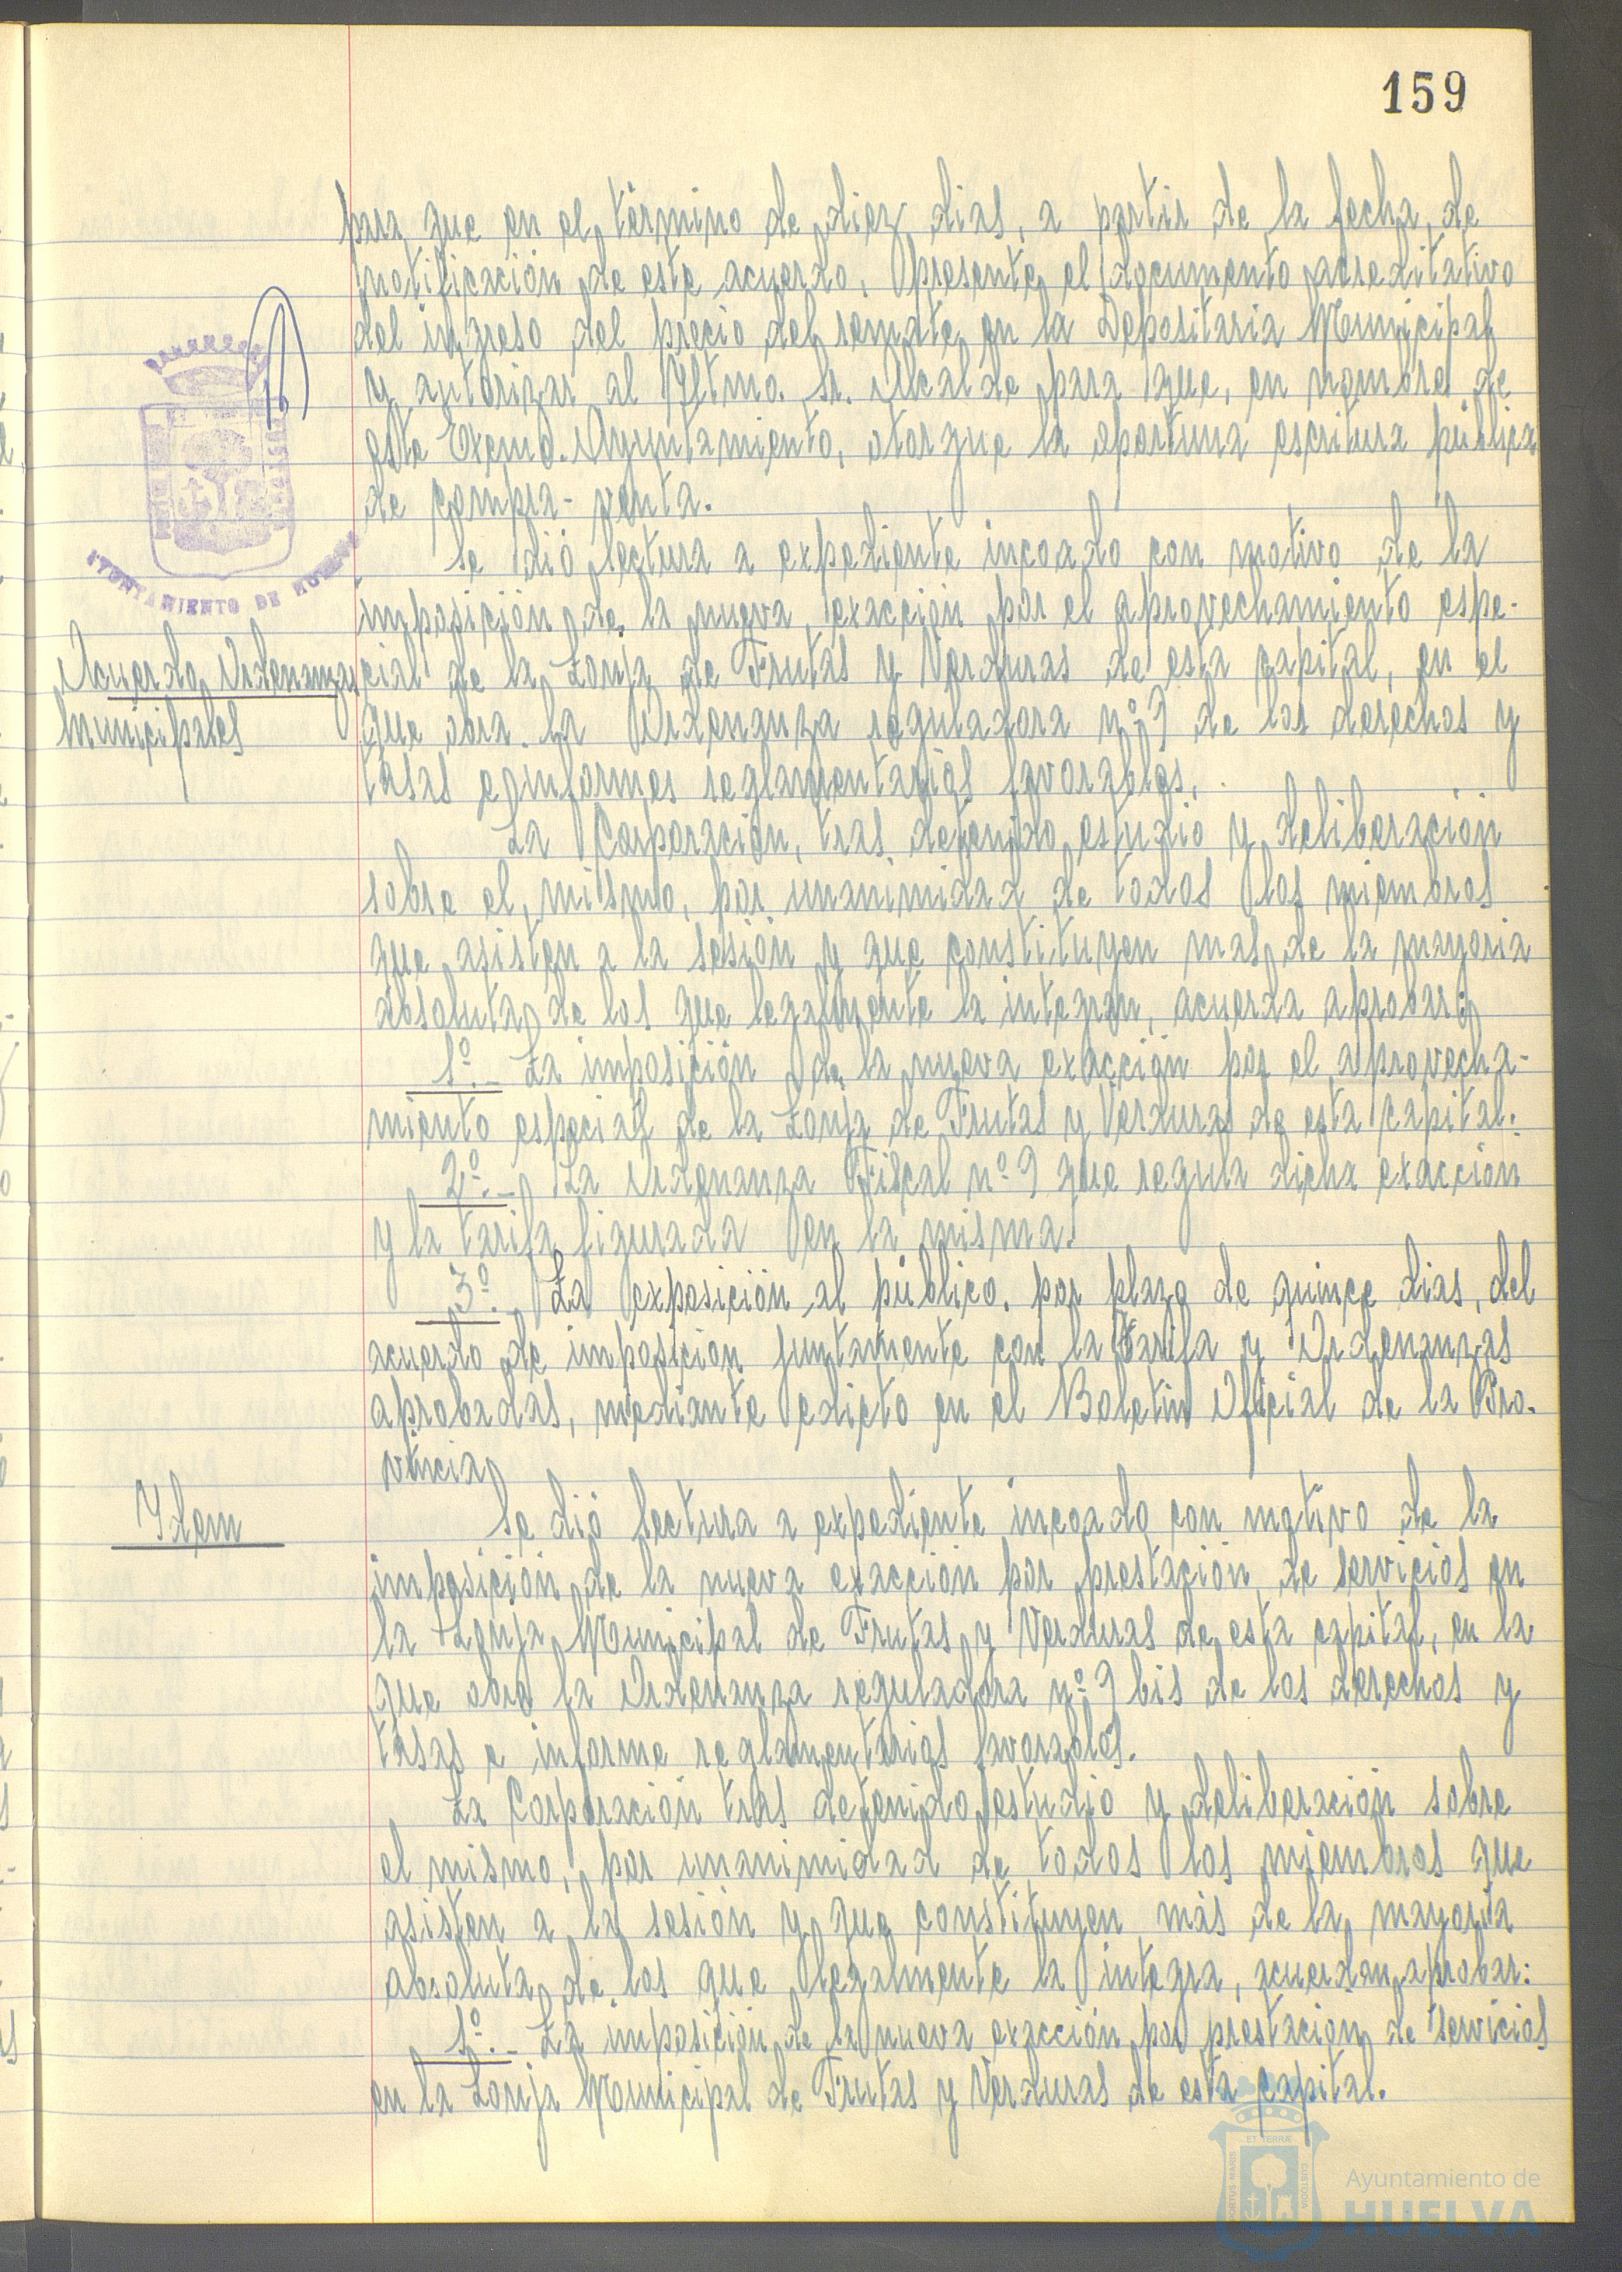 159
para que en el término de diez dias, a partir de la fecha de
notificación de este acuerdo, presente el documento acreditativo
del ingreso del precio del remate en la Depositaria Municipal
y autorizar al Iltmo. Sr. Alcalde para que, en nombre de
este Excmo. Ayuntamiento, otorgue la oportuna escritura pública
de compra-venta.
AYUNTAMIENTO DE HUELVA
Se dió lectura a expediente incoado con motivo de la
imposición de la nueva exacción por el aprovechamiento espe-
Acuerdo Ordenanzas
Municipales
cial de la Lonja de Frutas y Verduras de esta capital, en el
que obra la Ordenanza reguladora nº 9 de los derechos y
tasas e informes reglamentarios favorables.
La Corporación, tras detenido estudio y deliberación
sobre el mismo, por unanimidad de todos los miembros
que asisten a la sesión y que constituyen mas de la mayoria
absoluta de los que legalmente la integran, acuerda aprobar:
1º.- La imposición de la nueva exacción por el aprovecha-
miento especial de la Lonja de Frutas y Verduras de esta capital.
2º.- La Ordenanza Fiscal nº 9 que regula dicha exacción
y la tarifa figurada en la misma.
3º.- La exposición al público, por plazo de quince dias, del
acuerdo de imposición juntamente con la Tarifa y Ordenanzas
aprobadas, mediante edicto en el Boletin Oficial de la Pro-
vincia
Idem
Se dió lectura a expediente incoado con motivo de la
imposición de la nueva exacción por prestación de servicios en
la Lonja Municipal de Frutas y Verduras de esta capital, en la
que obra la Ordenanza reguladora nº 9 bis de los derechos y
tasas e informe reglamentarios favorables.
La Corporación tras detenido estudio y deliberación sobre
el mismo, por unanimidad de todos los miembros que
asisten a la sesión y que constituyen más de la mayoria
absoluta de los que legalmente la integra, acuerdan aprobar:
1º.- La imposición de la nueva exacción por prestación de servicios
en la Lonja Municipal de Frutas y Verduras de esta capital.
PORTUS MARIS ET TERRAE CUSTODIA
Ayuntamiento de
HUELVA